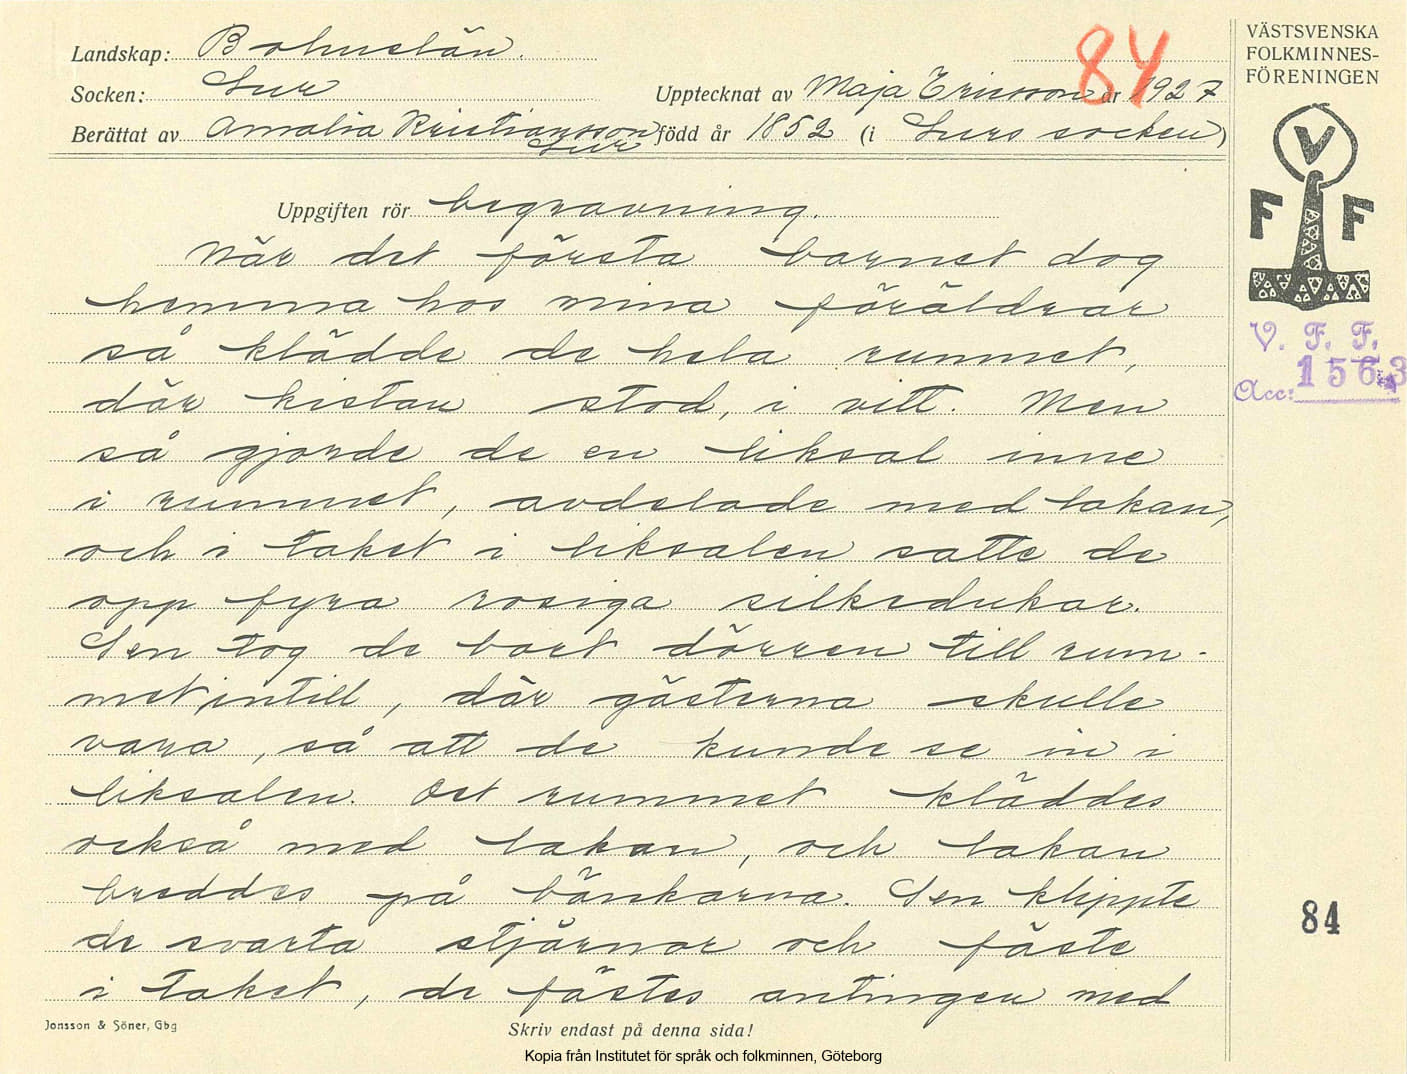 Landskap: Bohuslän.
84
Socken: Lur
Upptecknat av Maja Ericsson år 1927
Berättat av Amalia Kristiansson Lur född år 1852 (i Lurs socken)
VÄSTSVENSKA
FOLKMINNES-
FÖRENINGEN
V
F F
V. F. F.
Acc: 1563
Uppgiften rör begravning.
När det första barnet dog
hemma hos mina föräldrar
så klädde de hela rummet,
där kistan stod, i vitt. Men
så gjorde de en liksal inne
i rummet, avdelade med lakan,
och i taket i liksalen satte de
opp fyra rosiga silkedukar.
Sen tog de bort dörren till rum-
met intill, där gästerna skulle
vara, så att de kunde se in i
liksalen. Det rummet kläddes
också med lakan, och lakan
breddes på bänkarna. Sen klippte
de svarta stjärnor och fäste
i taket, de fästes antingen med
84
Jonsson & Söner, Gbg
Skriv endast på denna sida!
Kopia från Institutet för språk och folkminnen, Göteborg